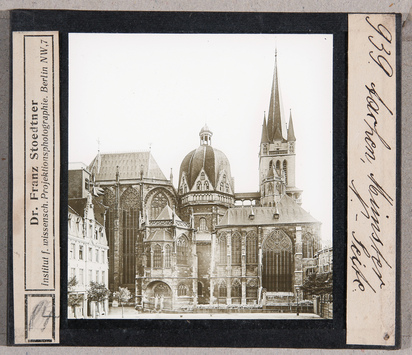 Dr. Franz Stoedtner
Institut f. wissensch. Projektionsphotographie. Berlin NW.7
939. Aachen, Münster